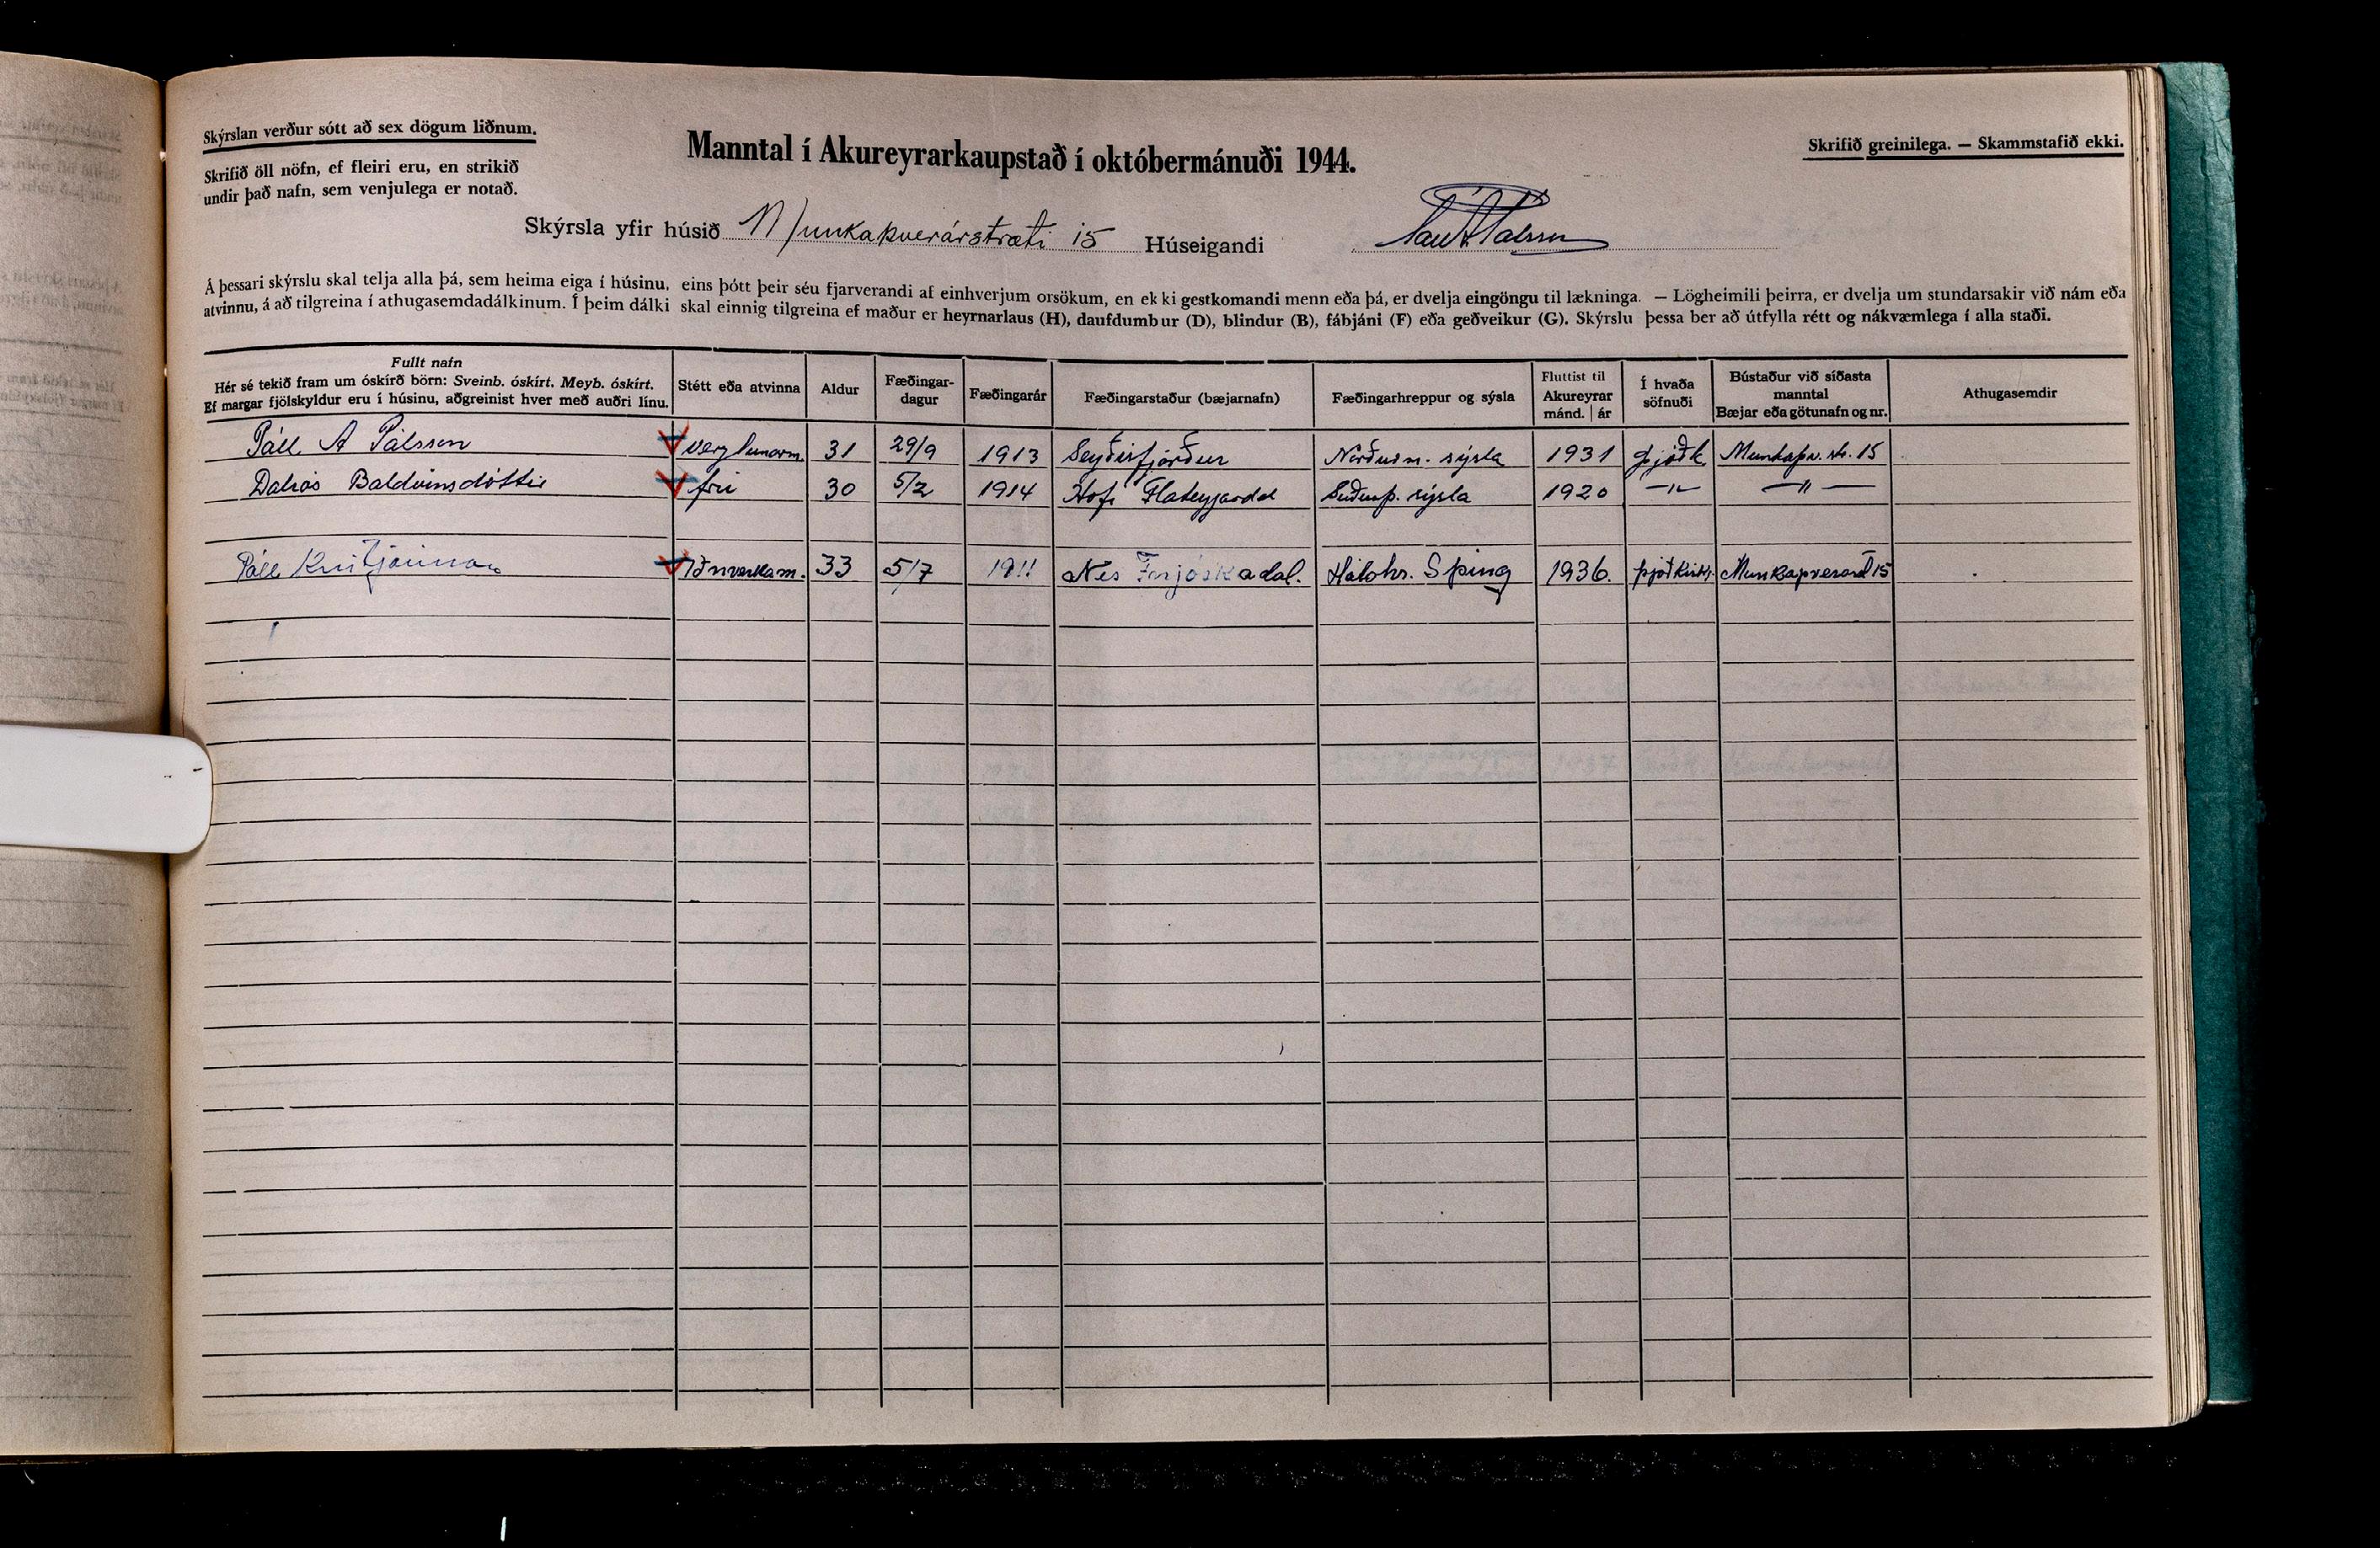 Skýrslan verður sótt að sex dögum liðnum.
Skrifið öll nöfn, ef fleiri eru, en strikið
undir það nafn, sem venjulega er notað.
Manntal í Akureyrarkaupstað í októbermánuði 1944.
Skrifið greinilega. — Skammstafið ekki.
Skýrsla yfir húsið Munkaþverárstræti 15 Húseigandi Páll A Pálsson
Á þessari skýrslu skal telja alla þá, sem heima eiga í húsinu, eins þótt þeir séu fjarverandi af einhverjum orsökum, en ekki gestkomandi menn eða þá, er dvelja eingöngu til lækninga. — Lögheimili þeirra, er dvelja um stundarsakir við nám eða
atvinnu, á að tilgreina í athugasemdadálkinum. Í þeim dálki skal einnig tilgreina ef maður er heyrnarlaus (H), daufdumbur (D), blindur (B), fábjáni (F) eða geðveikur (G). Skýrslu þessa ber að útfylla rétt og nákvæmlega í alla staði.
Fullt nafn
Hér sé tekið fram um óskírð börn: Sveinb. óskírt. Meyb. óskírt.
Ef margar fjölskyldur eru í húsinu, aðgreinist hver með auðri línu.
Stétt eða atvinna
Aldur
Fæðingar-
dagur
Fæðingarár
Fæðingarstaður (bæjarnafn)
Fæðingarhreppur og sýsla
Fluttist til
Akureyrar
mánd. | ár
Í hvaða
söfnuði
Bústaður við síðasta
manntal
Bæjar eða götunafn og nr.
Athugasemdir
Páll A Pálsson verzlunarm 31 29/9 1913 Seyðisfjörður Norðurm. sýsla 1931 þjóðk Munkaþv. str. 15
Dalrós Baldvinsdóttir frú 30 5/2 1914 Hofi Flateyjardal Suðurþ. sýsla 1920 —"— —"—
Páll Kristjánsson Iðnverkam. 33 5/7 1911 Nes Fnjóskadal. Hálshr. S þing 1936. þjóðkirkj. Munkaþverárst 15